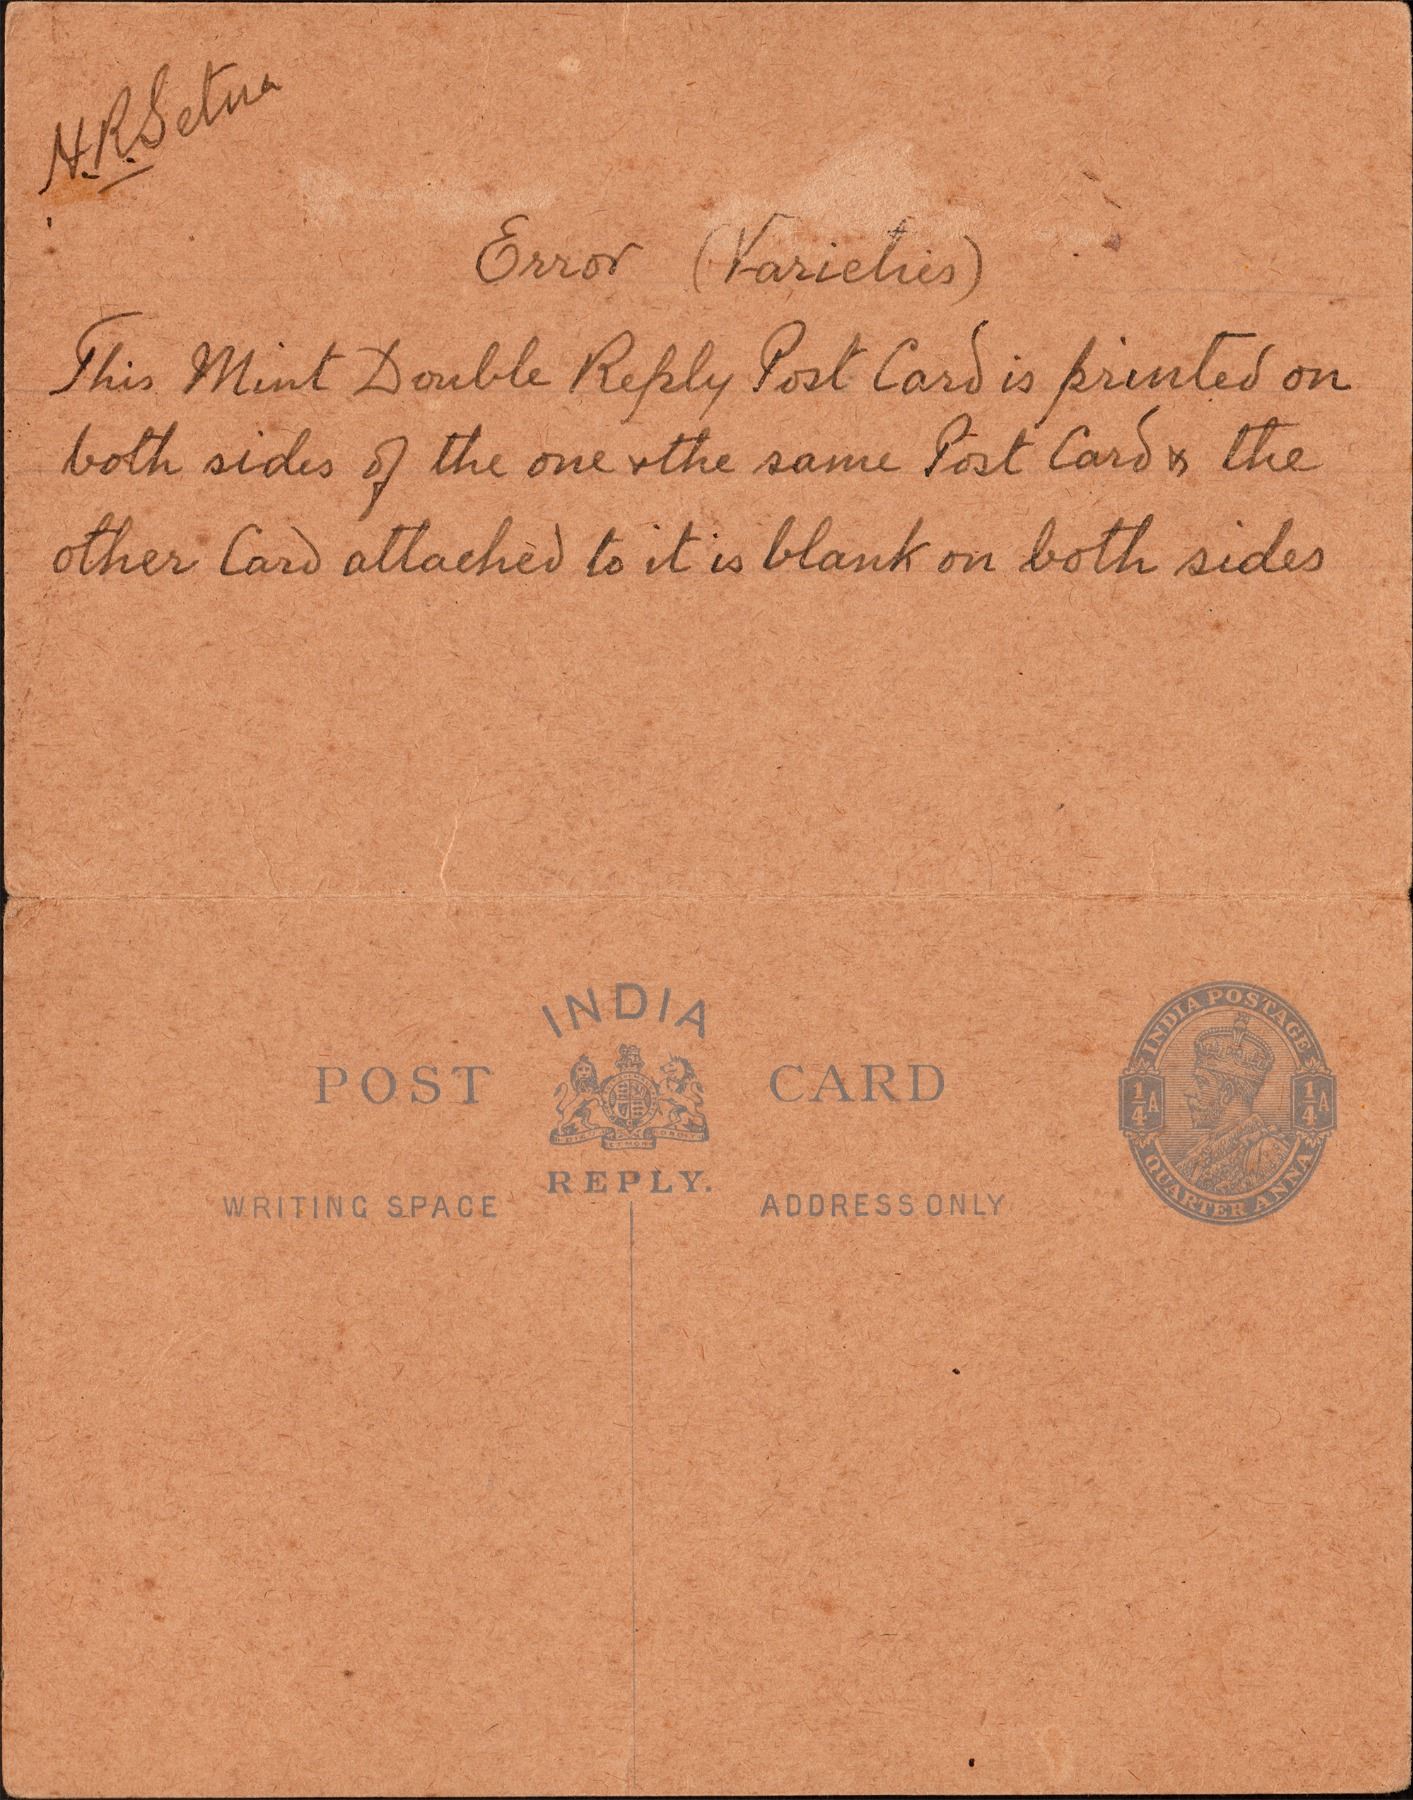 N.R. Setna
Error (Varieties)
This Mint Double Reply Post Card is printed on
both sides of the one & the same Post Card & the
other Card attached to it is blank on both sides
INDIA
POST CARD
REPLY.
WRITING SPACE ADDRESS ONLY
INDIA POSTAGE
¼A ¼A
QUARTER ANNA
DIEU ET MON DROIT